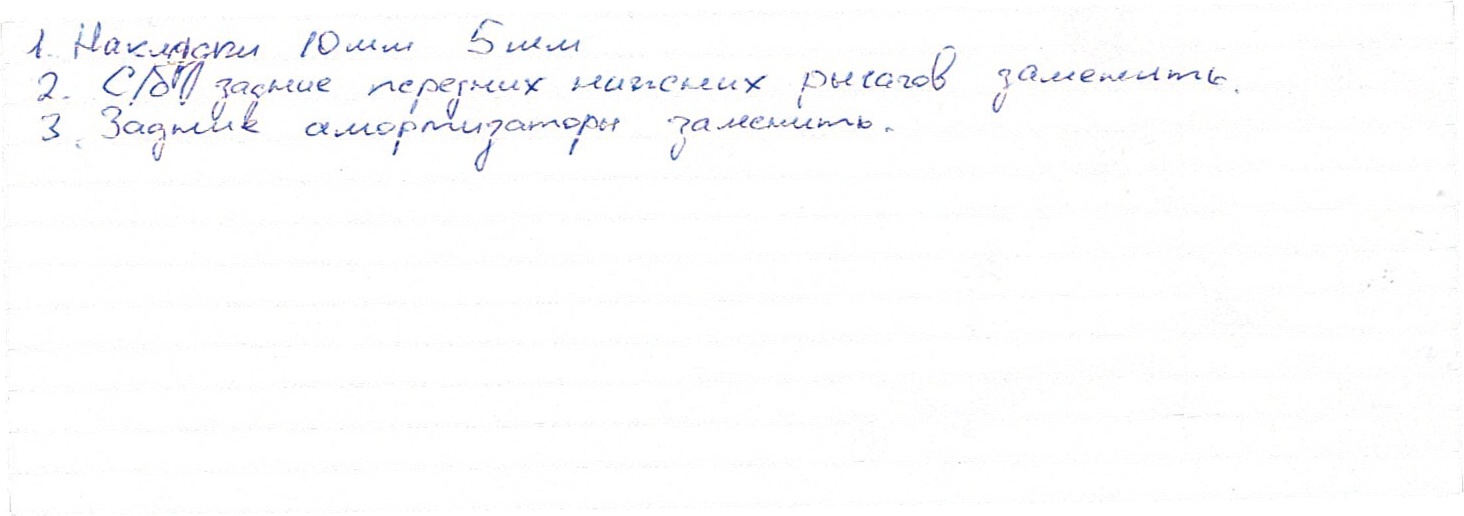 1. Накладки 10мм 5мм
2. С/бл задние передних нижних рычагов заменить.
3. Задние амортизаторы заменить.